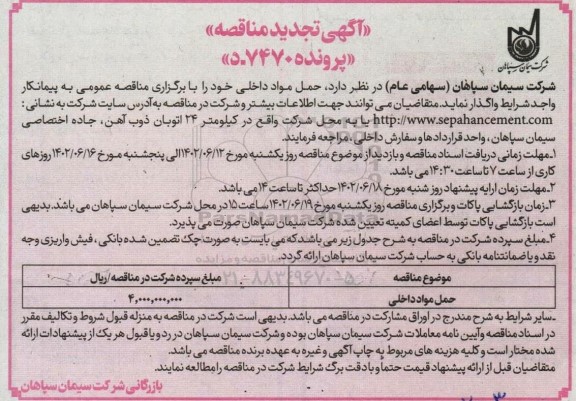 «آگهی تجدید مناقصه»
«پرونده ۷۴۷۰-د»
شرکت سیمان سپاهان
شرکت سیمان سپاهان (سهامی عام) در نظر دارد، حمل مواد داخلی خود را با برگزاری مناقصه عمومی به پیمانکار
واجد شرایط واگذار نماید. متقاضیان می توانند جهت اطلاعات بیشتر و شرکت در مناقصه به آدرس سایت شرکت به نشانی :
http://www.sepahancement.com یا به محل شرکت واقع در کیلومتر ۲۴ اتوبان ذوب آهن، جاده اختصاصی
سیمان سپاهان، واحد قراردادها و سفارش داخلی، مراجعه فرمایند.
۱.مهلت زمانی دریافت اسناد مناقصه و بازدید از موضوع مناقصه روز یکشنبه مورخ ۱۴۰۲/۰۶/۱۲ الی پنجشنبه مورخ ۱۴۰۲/۰۶/۱۶ روزهای
کاری از ساعت ۷ تا ساعت ۱۴:۳۰ می باشد.
۲.مهلت زمان ارایه پیشنهاد روز شنبه مورخ ۱۴۰۲/۰۶/۱۸ حداکثر تا ساعت ۱۴ می باشد.
۳.زمان بازگشایی پاکات و برگزاری مناقصه روز یکشنبه مورخ ۱۴۰۲/۰۶/۱۹ ساعت ۱۵ در محل شرکت سیمان سپاهان می باشد. بدیهی
است بازگشایی پاکات توسط اعضای کمیته تعیین شده شرکت سیمان سپاهان صورت می پذیرد.
۴.مبلغ سپرده شرکت در مناقصه به شرح جدول زیر می باشد که می بایست به صورت چک تضمین شده بانکی، فیش واریزی وجه
نقد و یا ضمانتنامه بانکی به حساب شرکت سیمان سپاهان ارائه گردد.
موضوع مناقصه	مبلغ سپرده شرکت در مناقصه/ریال
حمل مواد داخلی	۴,۰۰۰,۰۰۰,۰۰۰
۰۲۱-۸۸۳۴۹۶۷۰-۵
.سایر شرایط به شرح مندرج در اوراق مشارکت در مناقصه می باشد. بدیهی است شرکت در مناقصه به منزله قبول شروط و تکالیف مقرر
در اسناد مناقصه و آیین نامه معاملات شرکت سیمان سپاهان بوده و شرکت سیمان سپاهان در رد و یا قبول هر یک از پیشنهادات ارائه
شده مختار است و کلیه هزینه های مربوط به چاپ آگهی و غیره به عهده برنده مناقصه می باشد.
متقاضیان قبل از ارائه پیشنهاد قیمت حتما و با دقت برگ شرایط شرکت در مناقصه را مطالعه نمایند.
بازرگانی شرکت سیمان سپاهان